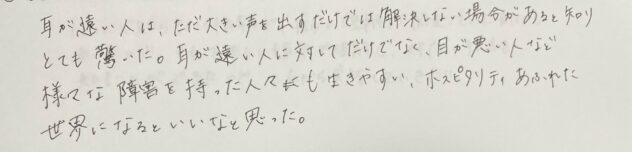 耳が遠い人は、ただ大きい声を出すだけでは解決しない場合があると知り
とても驚いた。耳が遠い人に対してだけでなく、目が悪い人など
様々な障害を持った人々も生きやすい、ホスピタリティあふれた
世界になるといいなと思った。